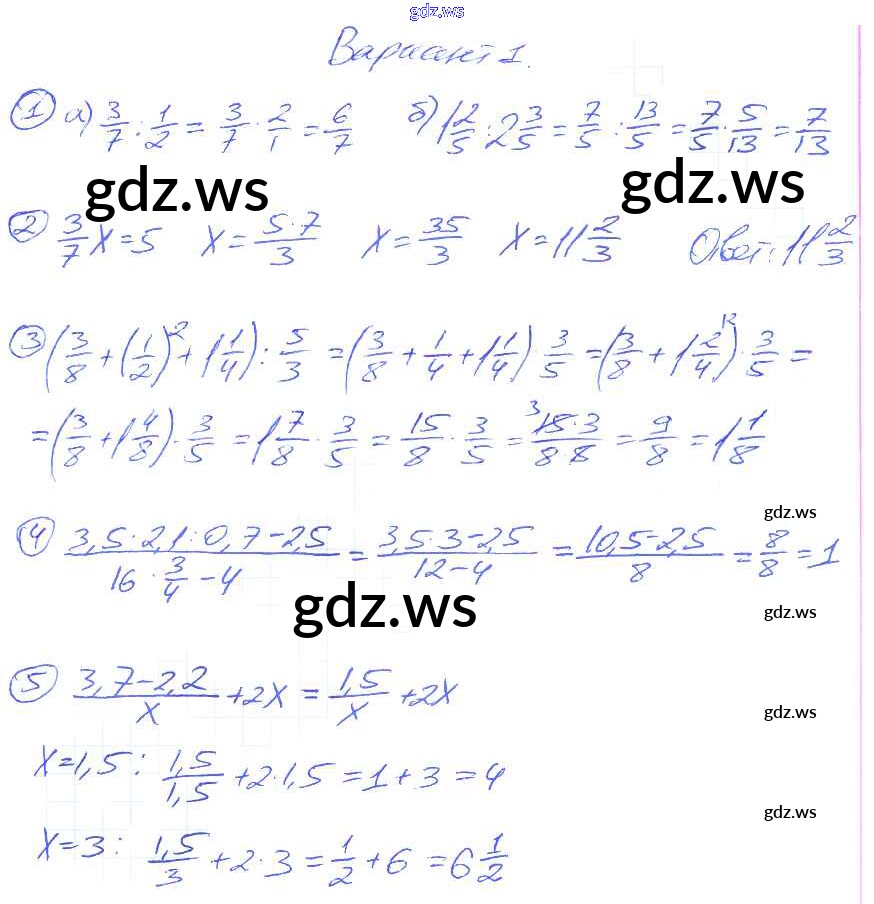 gdz.ws
Вариант 1.
① а) 3/7 : 1/2 = 3/7 · 2/1 = 6/7 б) 1 2/5 : 2 3/5 = 7/5 : 13/5 = 7/5 · 5/13 = 7/13
gdz.ws gdz.ws
② 3/7 x = 5 x = 5·7/3 x = 35/3 x = 11 2/3 Ответ: 11 2/3
③ (3/8 + (1/2)² + 1 1/4) : 5/3 = (3/8 + 1/4 + 1 1/4) · 3/5 = (3/8 + 1 2/4) · 3/5 =
= (3/8 + 1 4/8) · 3/5 = 1 7/8 · 3/5 = 15/8 · 3/5 = 15·3/8·8 = 9/8 = 1 1/8
gdz.ws
④ 3,5·2,1:0,7-2,5 / 16 · 3/4 - 4 = 3,5·3-2,5 / 12-4 = 10,5-2,5 / 8 = 8/8 = 1
gdz.ws gdz.ws
⑤ 3,7-2,2 / x + 2x = 1,5/x + 2x
gdz.ws
x=1,5: 1,5/1,5 + 2·1,5 = 1+3 = 4
gdz.ws
x=3: 1,5/3 + 2·3 = 1/2 + 6 = 6 1/2